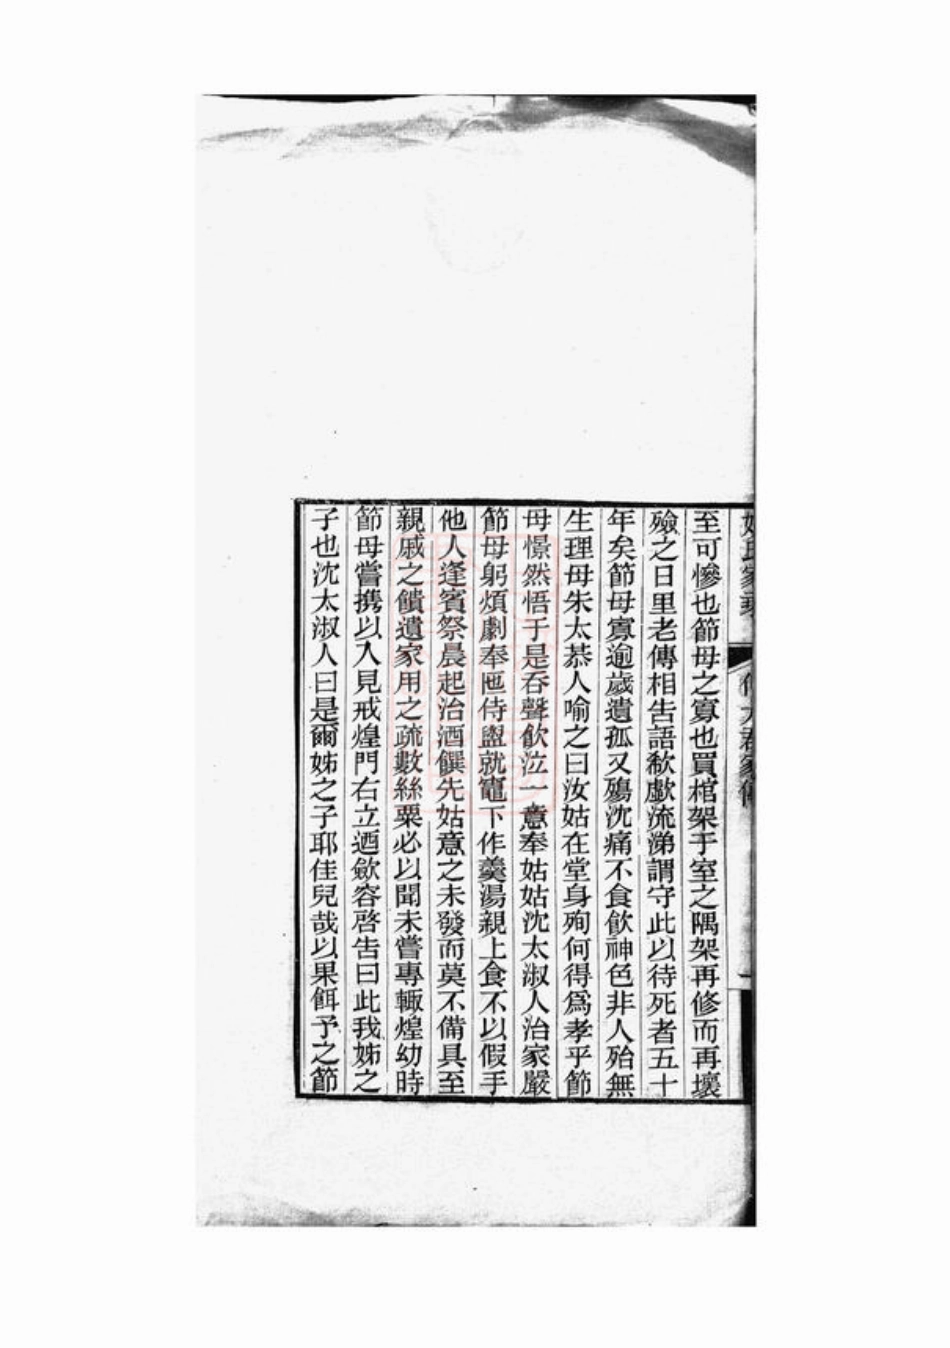 姚氏家乘
至可慘也節母之寡也買棺架于室之隅架再修而再壞
殮之日里老傳相告語欷歔流涕謂守此以待死者五十
年矣節母寡逾歲遺孤又殤沈痛不食飲神色非人殆無
生理母朱太恭人喻之曰汝姑在堂身殉何得爲孝乎節
母憬然悟于是吞聲飲泣一意奉姑姑沈太淑人治家嚴
節母躬煩劇奉匜侍盥就竈下作羹湯親上食不以假手
他人逢賓祭晨起治酒饌先姑意之未發而莫不備具至
親戚之饋遺家用之疏數絲粟必以聞未嘗專輒煌幼時
節母嘗携以入見戒煌門右立迺歛容啓告曰此我姊之
子也沈太淑人曰是爾姊之子耶佳兒哉以果餌予之節